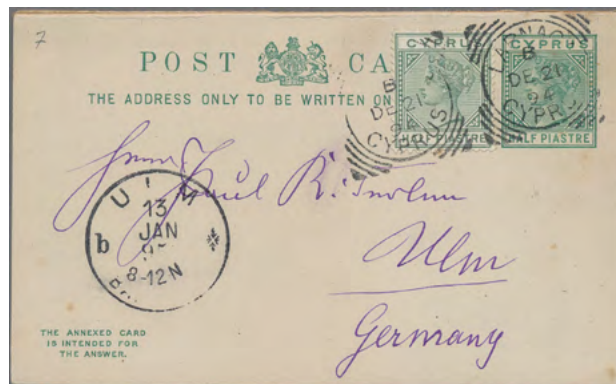 7
POST CA
THE ADDRESS ONLY TO BE WRITTEN ON
CYPRUS
HALF PIASTRE
CYPRUS
HALF PIASTRE
B
DE 21
CYPRUS
LARNACA
B
DE 21
94
CYPRUS
Herrn Paul
Ulm
Germany
ULM
13
JAN
b
8-12N
THE ANNEXED CARD
IS INTENDED FOR
THE ANSWER.